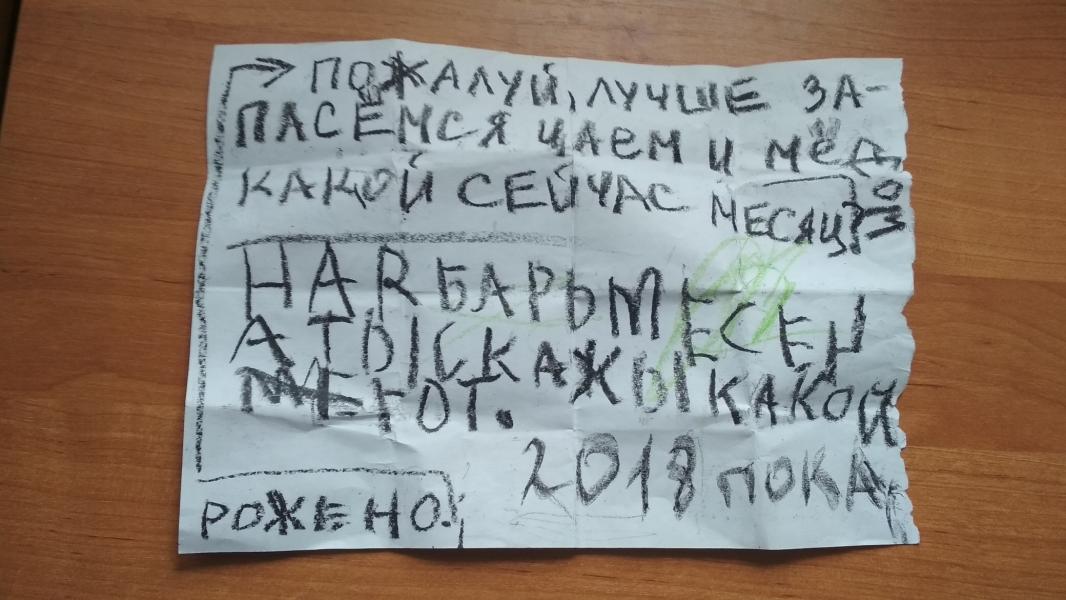 ПОЖАЛУЙ, ЛУЧШЕ ЗА-
ПАСЁМСЯ ЧАЕМ И МЁДОМ
КАКОЙ СЕЙЧАС МЕСЯЦ?
НАRБАРЬ МЕСЕЦ
А ТЫ СКАЖЫ КАКОЙ
ГОТ.
2018 ПОКА
РОЖЕНО!